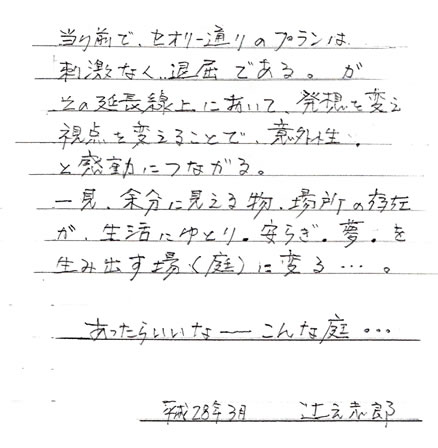 当り前で、セオリー通りのプランは
刺激なく、退屈である。が
その延長線上において、発想を変え
視点を変えることで、意外性・
と感動につながる。
一見、余分に見える物、場所の存在
が、生活にゆとり・安らぎ・夢・を
生み出す場(庭)に変る…。
あったらいいな――こんな庭…
平成28年3月 辻